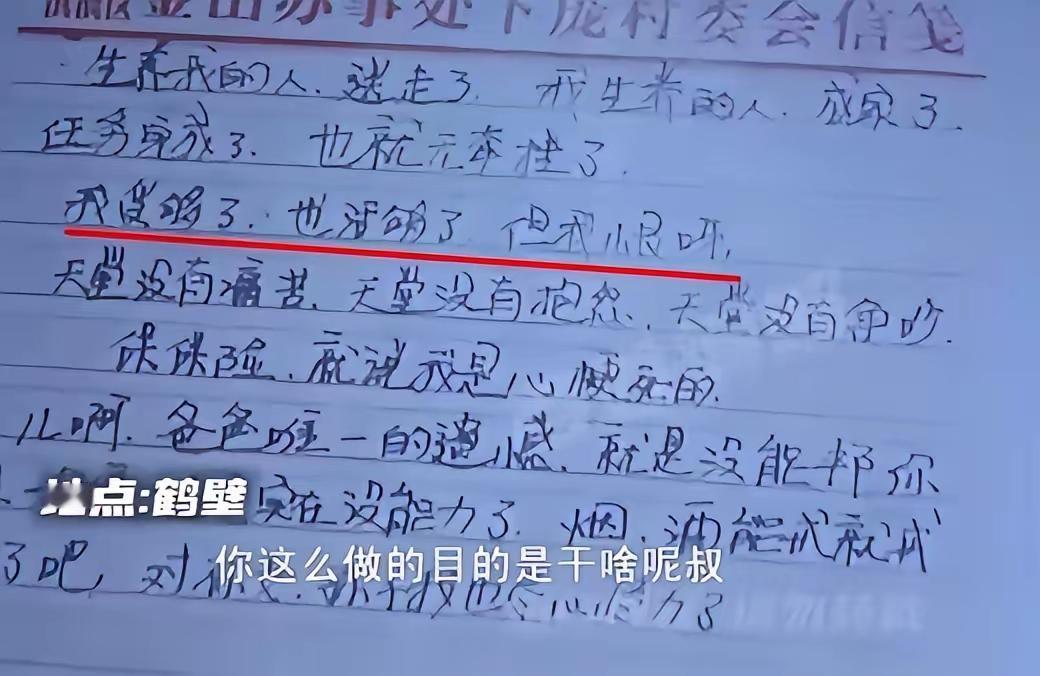 金山办事处下庞村委会信笺
生养我的人、送走了. 我生养的人、成家了.
任务完成了. 也就无牵挂了.
我受够了. 也活够了 但我恨呀,
天堂没有痛苦、天堂没有抱怨、天堂没有争吵.
保保险、就说我是心梗死的.
儿啊. 爸爸唯一的遗憾、就是没能帮你
实在没能力了. 烟、酒能戒就戒
了吧, 对你 也尽心尽力了
地点:鹤壁
你这么做的目的是干啥呢叔